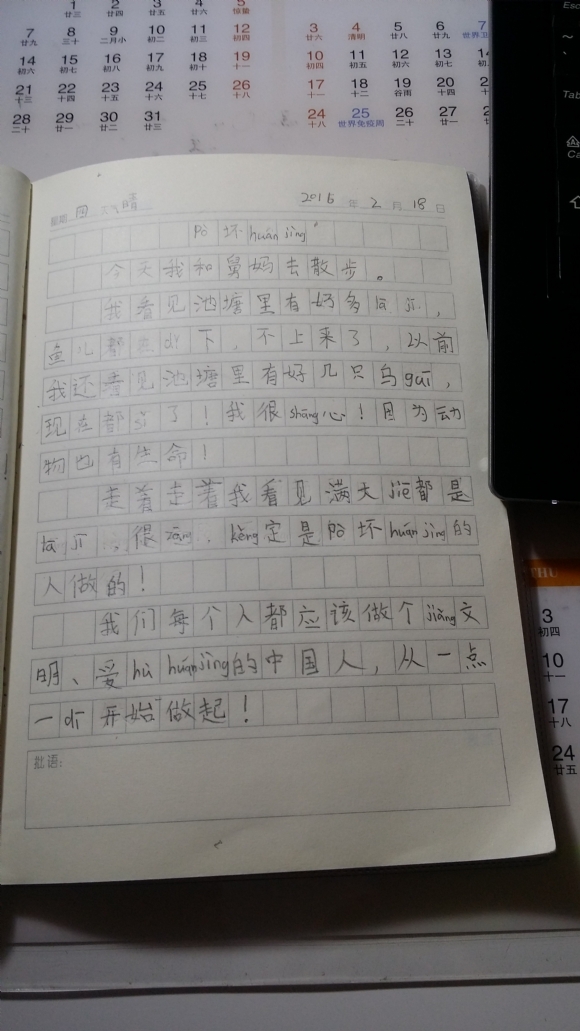 1 2 3 4 5
廿三 廿四 廿五 廿六 惊蛰
7 8 9 10 11 12
廿九 三十 二月小 初二 初三 初四
14 15 16 17 18 19
初六 初七 初八 初九 初十 十一
21 22 23 24 25 26
十三 十四 十五 十六 十七 十八
28 29 30 31
二十 廿一 廿二 廿三
3 4 5 6 7
廿六 清明 廿八 廿九
10 11 12 13
初四 初五 初六 初七
17 18 19 20
十一 十二 谷雨 十四
24 25 26 27
十八 世界免疫周 二十 廿一
Esc
Tab
星期 四 天气 晴 2016 年 2 月 18 日
pò 坏 huán jìng
今天我和舅妈去散步。
我看见池塘里有好多 lā jī，
鱼儿都 dī 下，不上来了，以前
我还看见池塘里有好几只乌 guī，
现在都 sǐ 了！我很 shāng 心！因为动
物也有生命！
走着走着我看见满大 jiē 都是
lā jī，很 zāng，kěng 定是 pò 坏 huán jìng 的
人做的！
我们每个人都应该做个 jiǎng 文
明、爱 hù huán jìng 的中国人，从一点
一 dī 开始做起！
批语：
THU
3
初四
10
十一
17
十八
24
廿五